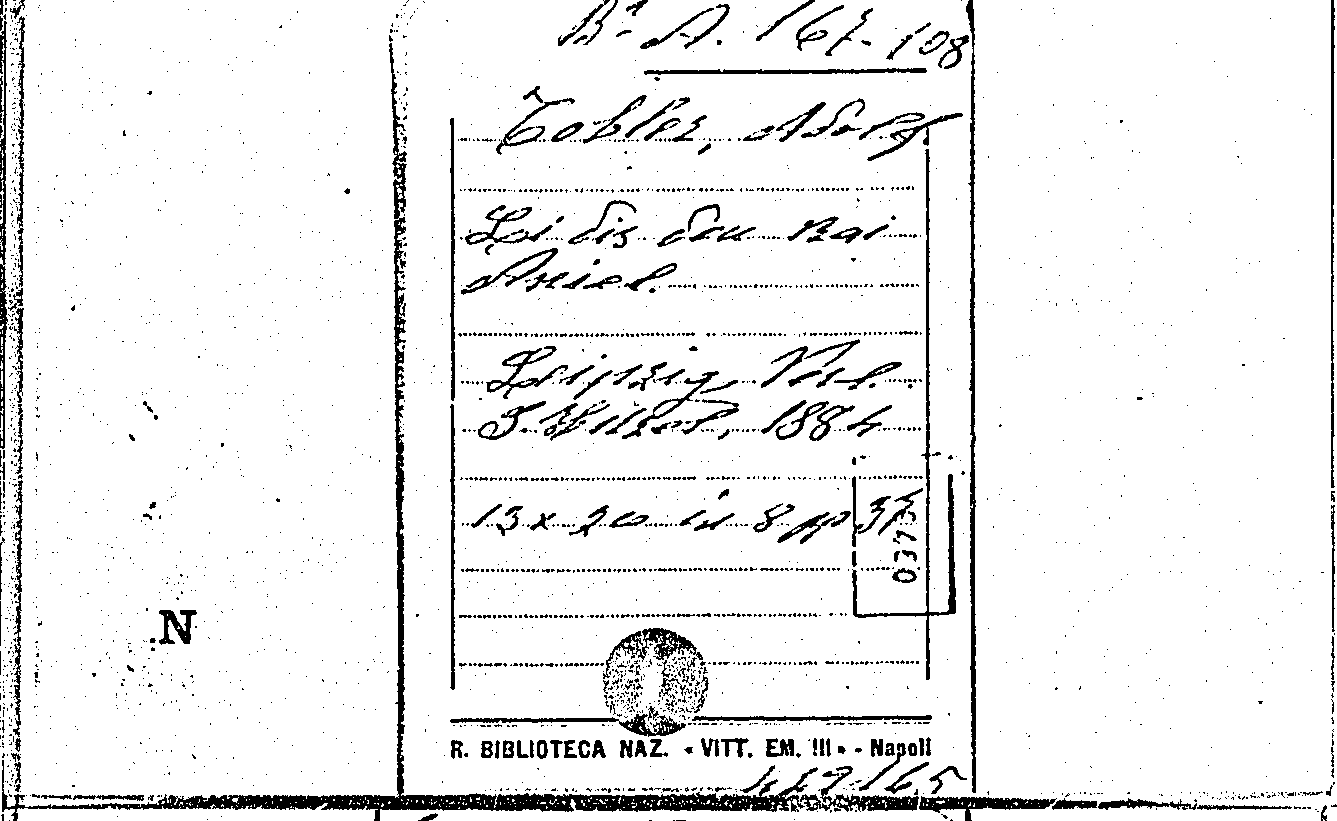 Bª A. 167-108
Tobler, Adolf.
Li dis dou Vrai
Aniel.
Leipzig, Verl.
S. Hirzel, 1884
13 x 20 in 8 pp 37
0373
N
R. BIBLIOTECA NAZ. « VITT. EM. III » - Napoli